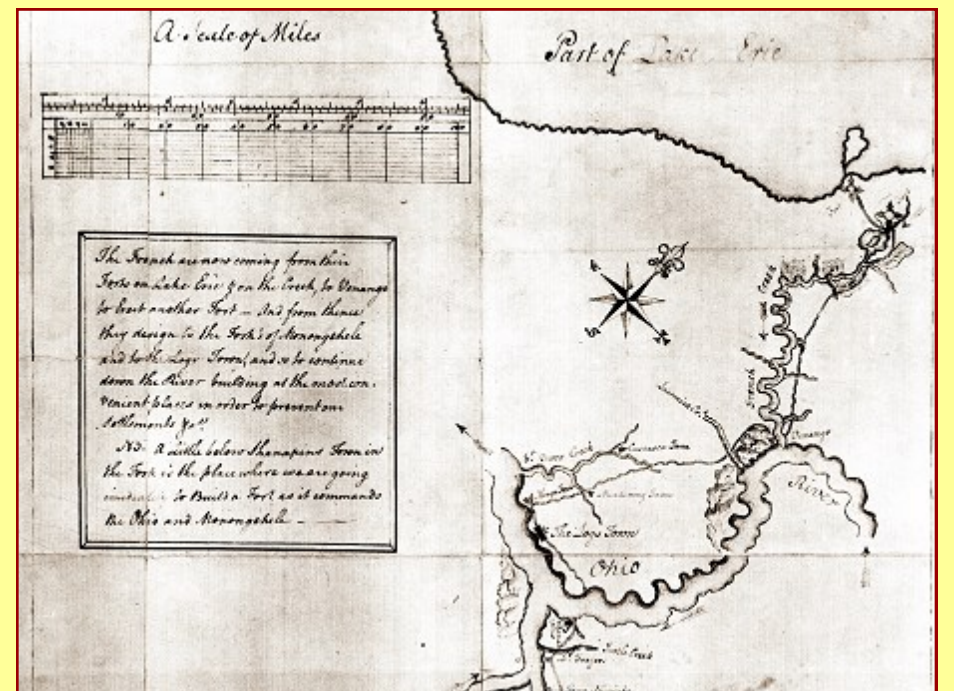 A Scale of Miles
Part of Lake Erie
The French are now coming from their
Forts on Lake Erie & on the Creek, to Venango
to Erect another Fort – And from thence
they design to the Fork's of Monongehele
and to the Logs Town, and so to continue
down the River building at the most con-
venient places in order to prevent our
Settlements &ca
NB. A Little below Shanapins Town in
the Fork is the place where we are going
to Build a Fort as it commands
the Ohio and Monongehele
French Creek
Venango
River
Creek
Murdering Town
The Logs Town
Ohio